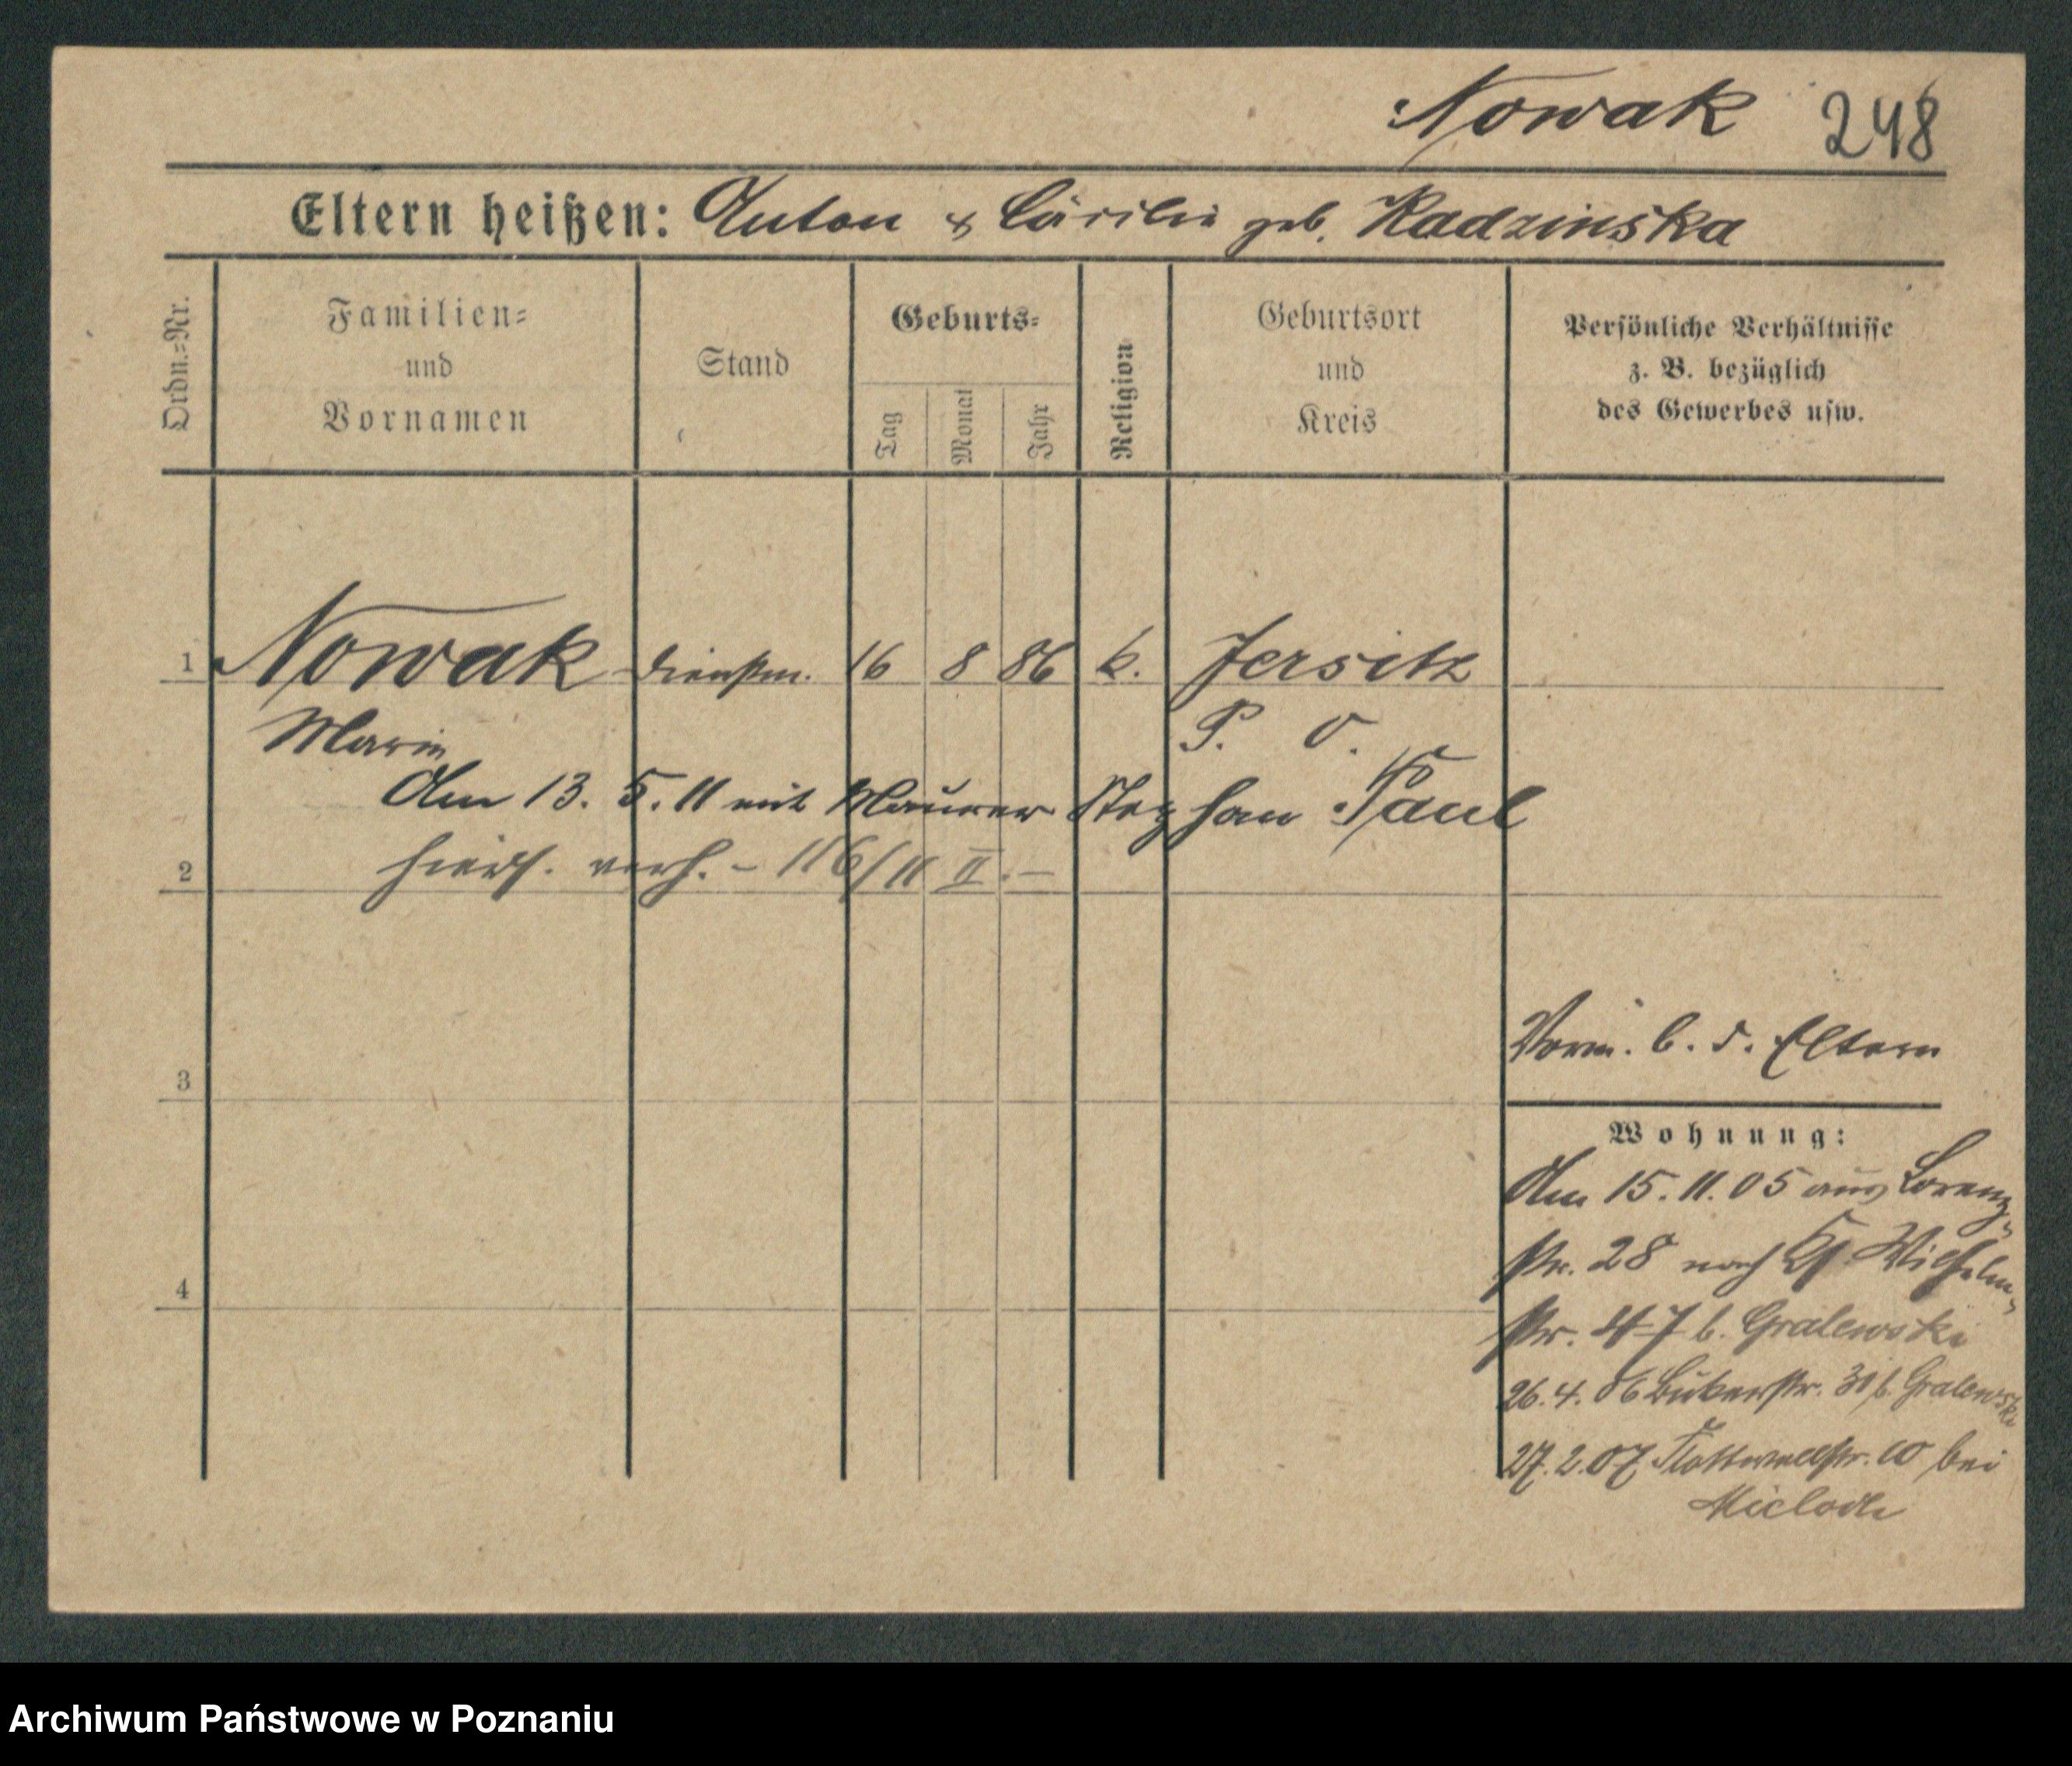 Nowak 248
Eltern heißen: Anton & Cäcilie geb. Radzinska
Ordn.=Nr.
Familien=
und
Vornamen
Stand
Geburts=
Tag
Monat
Jahr
Religion
Geburtsort
und
Kreis
Persönliche Verhältnisse
z. B. bezüglich
des Gewerbes usw.
1 Nowak Dienstm. 16 8 86 k. Jersitz
Marie P. O.
Am 13. 5. 11 mit Maurer Stephan Paul
2 hiers. verh. - 116/11 II. -
3
Vorm. b. d. Eltern
Wohnung:
Am 15. 11. 05 aus Lorenz-
str. 28 nach Wilhelm-
str. 47 b. Gralewski
4
26. 4. 06 Bukerstr. 31 b. Gralewski
27. 2. 07 Flottwellstr. 10 bei